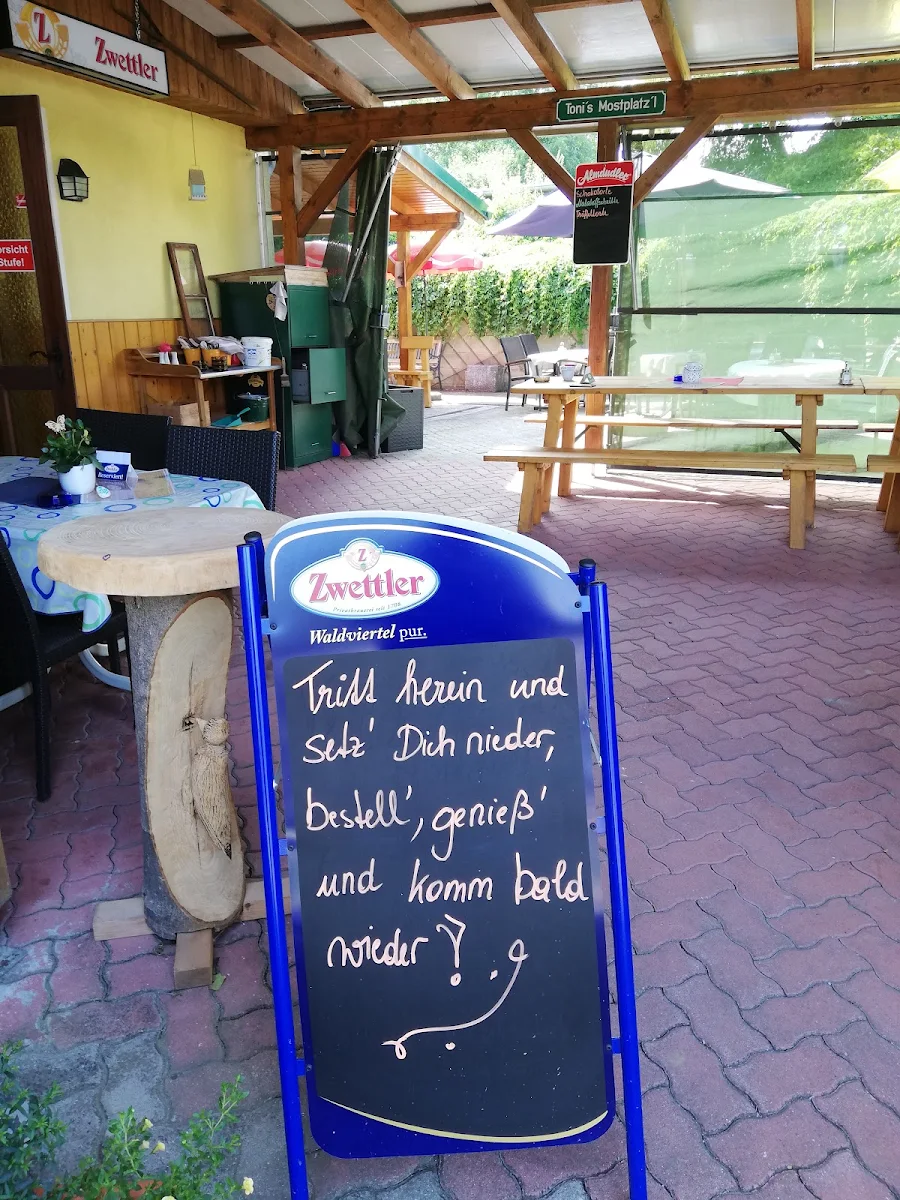 Z Zwettler
Toni's Mostplatz'l
Almdudler
Vorsicht
Stufe!
Reserviert
Z
Zwettler
Privatbrauerei seit 1708
Waldviertel pur.
Tritt herein und
setz' Dich nieder,
bestell', genieß'
und komm bald
wieder!